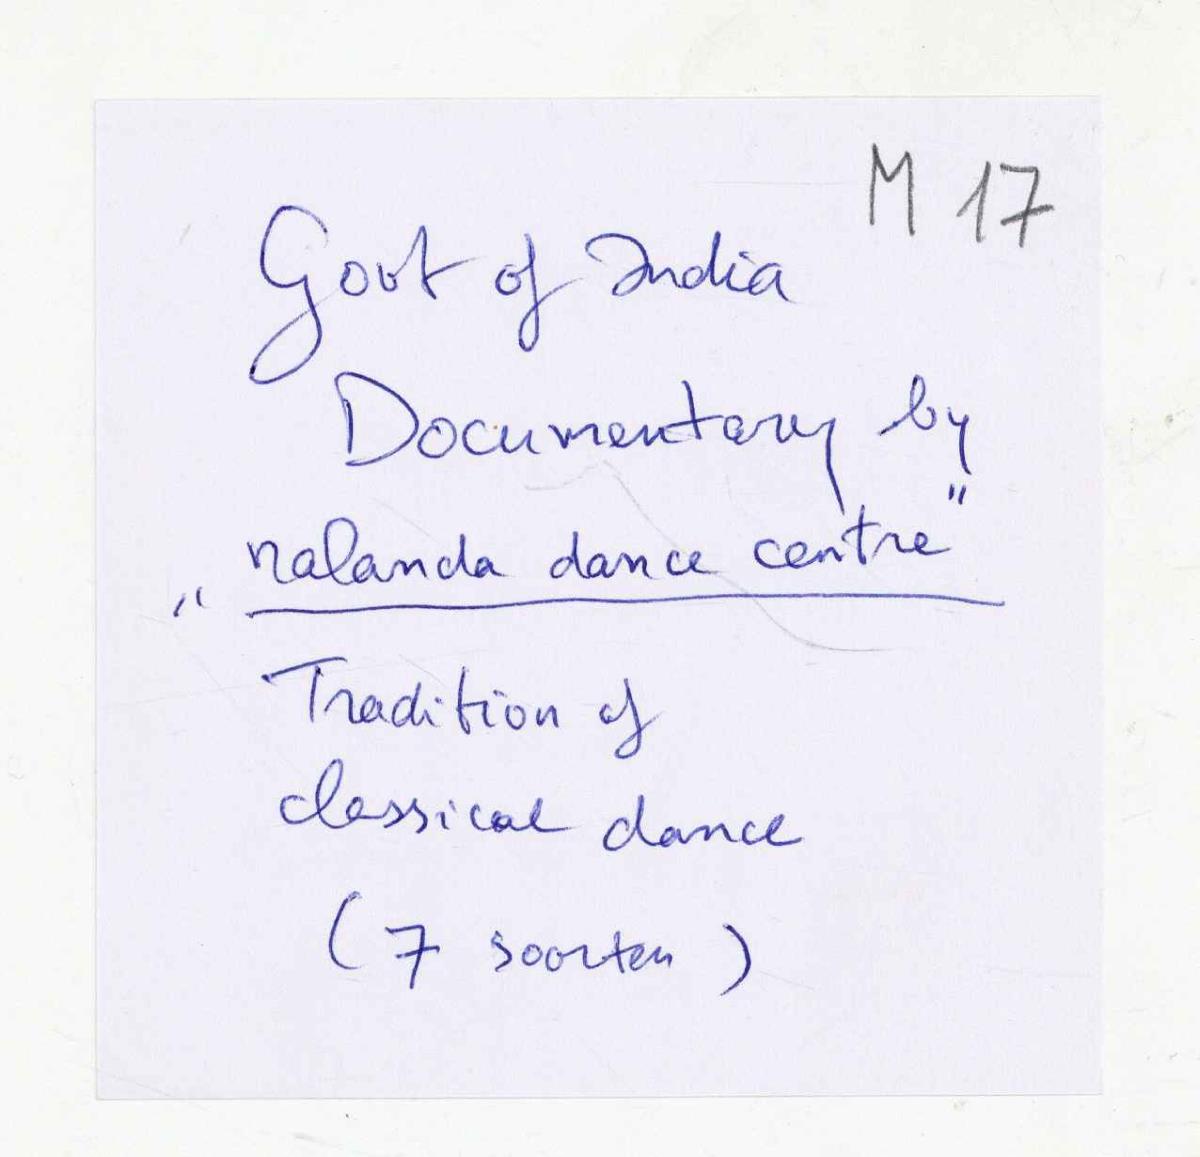 M 17
Govt of India
Documentary by
"nalanda dance centre"
Tradition of
classical dance
(7 soorten)